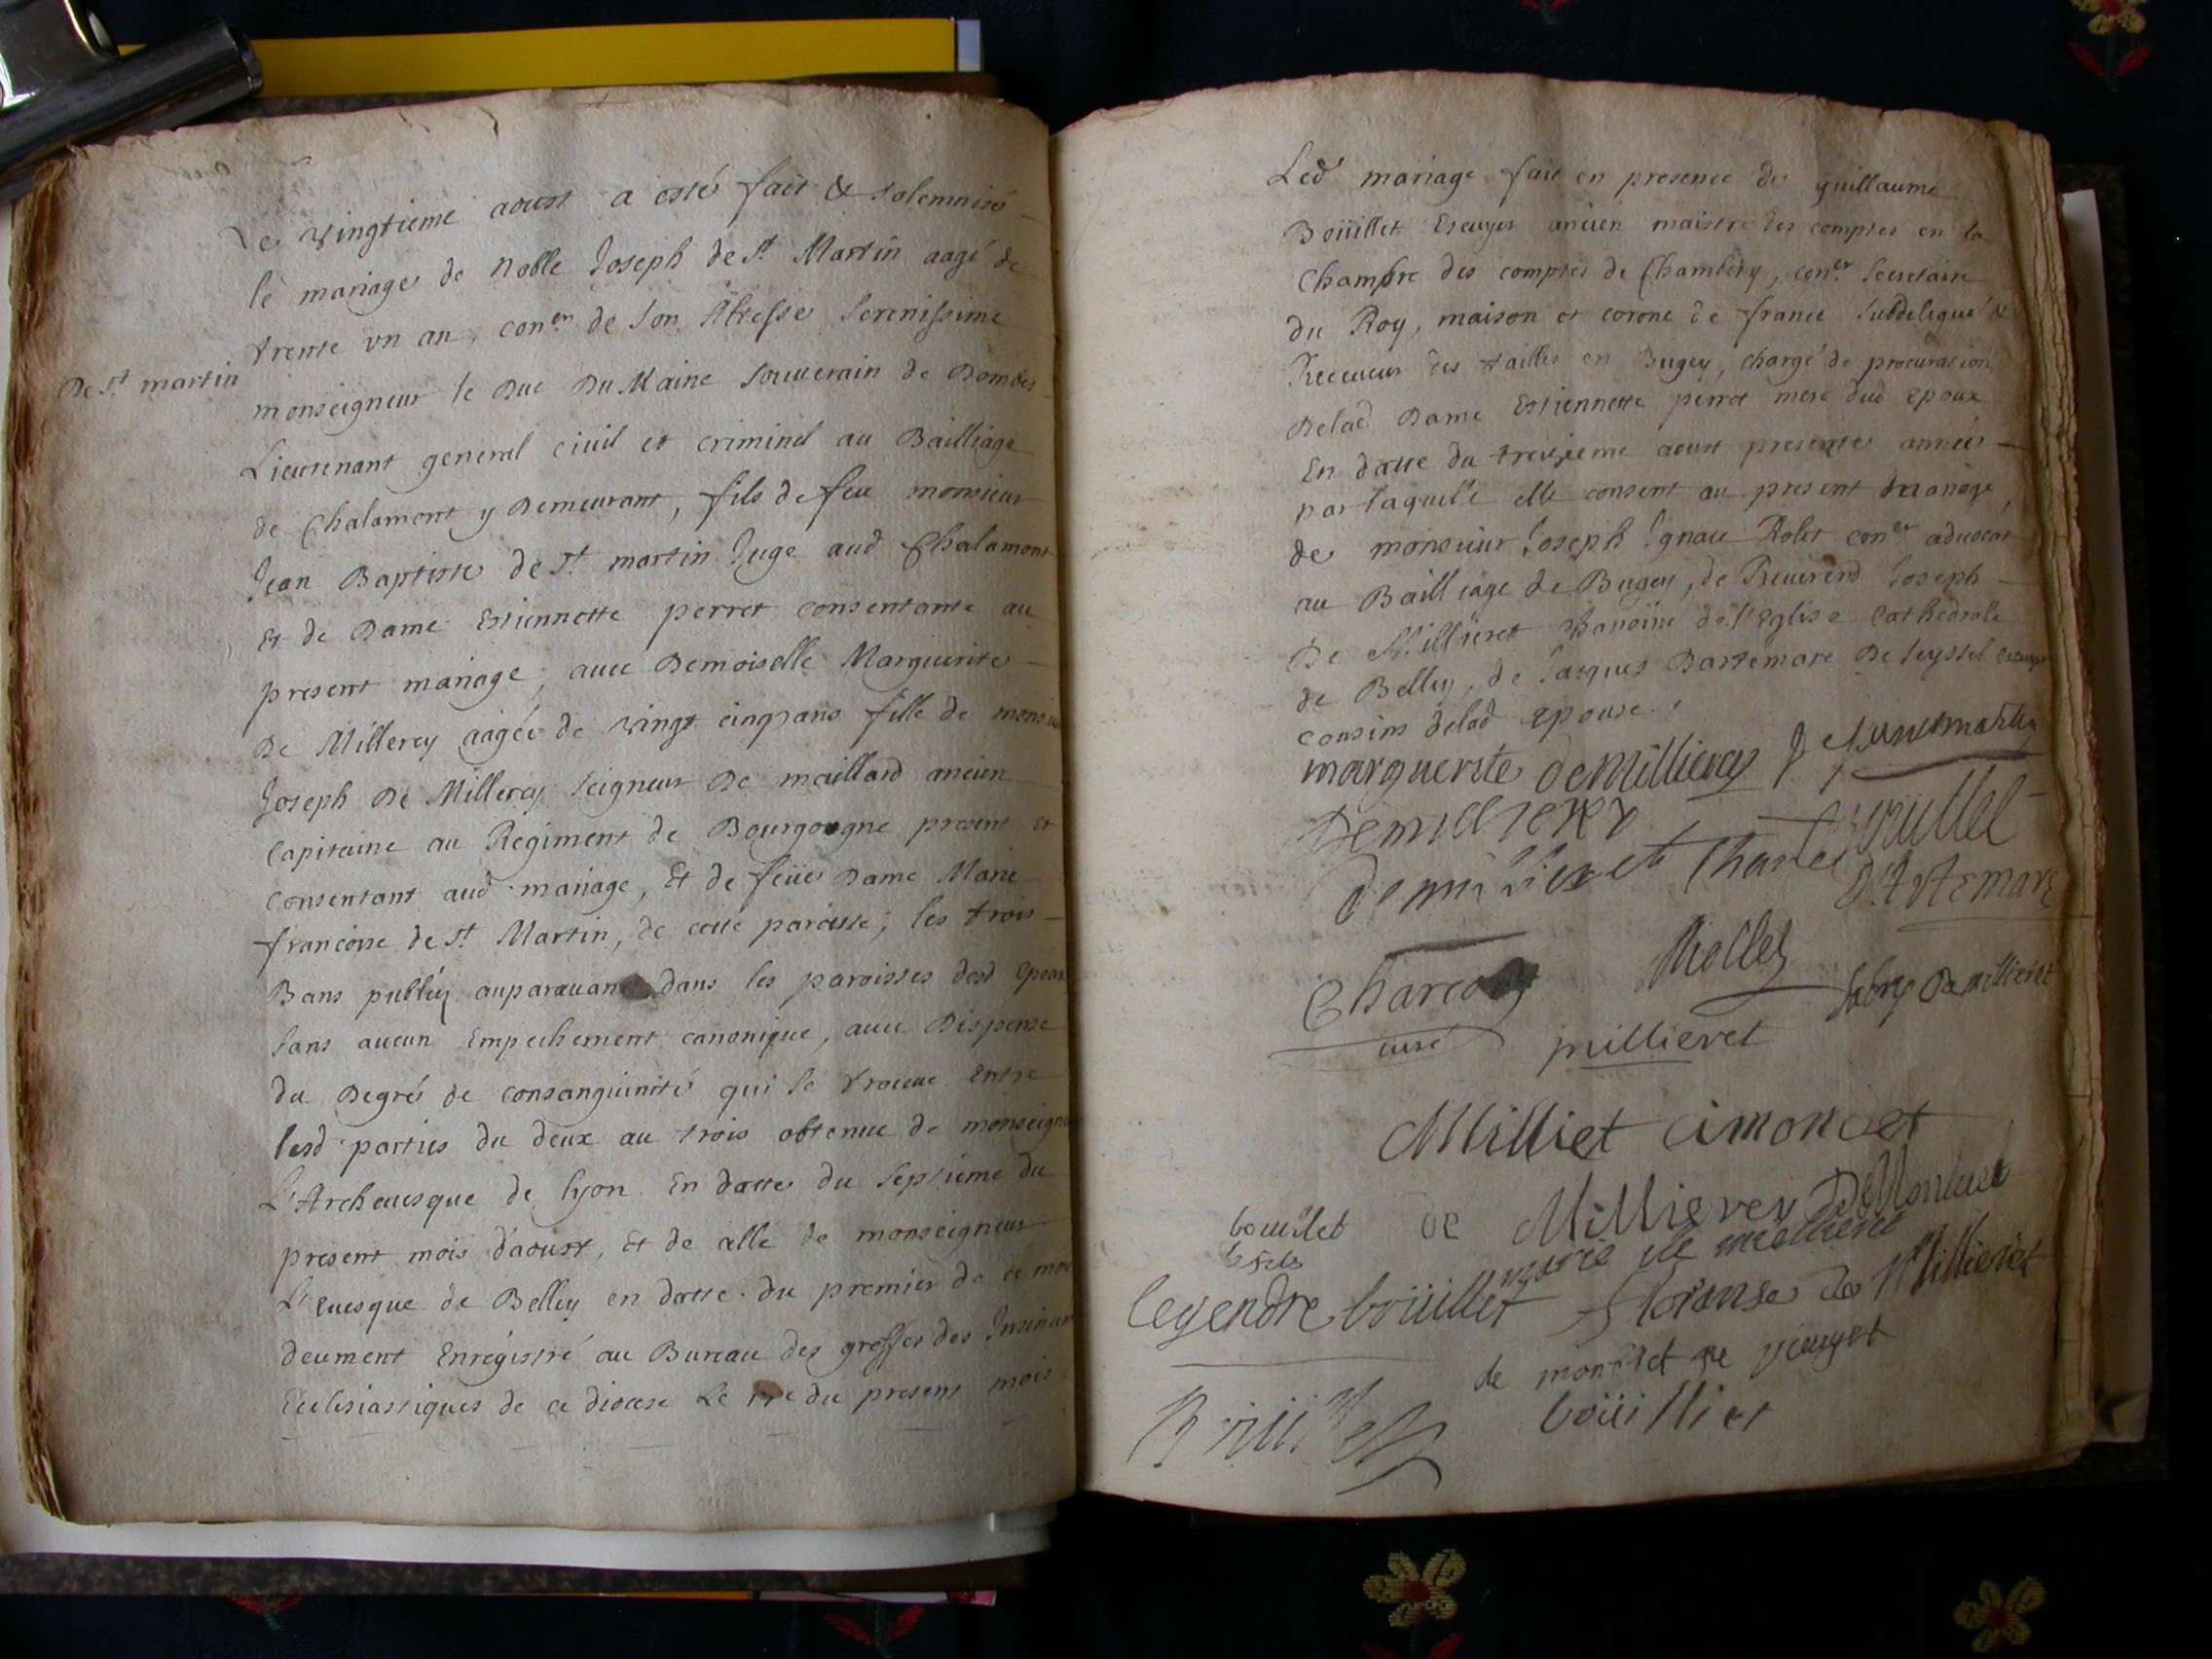 Le vingtieme aoust a esté fait & solemnisé
le mariage de Noble Joseph de St Martin aagé de
trente un an, coner de Son Altesse Serenissime
De St martin
monseigneur le Duc Du Maine Souuerain de Dombes
Lieutenant general ciuil et criminel au Bailliage
de Chalamont y Demeurant, fils de feu monsieur
Jean Baptiste de St martin Juge aud Chalamont
Et de Dame Estiennette perret consentante au
present mariage, auec Demoiselle Marguerite
De Millerey aagée de vingt cinq ans fille de monsieur
Joseph De Millerey Seigneur De maillard ancien
Capitaine au Regiment de Bourgogne present et
Consentant aud mariage, Et de feüe Dame Marie
francoise de St Martin, de cette paroisse; les trois
Bans publiez auparauant dans les paroisses desd Epoux
Sans aucun Empechement canonique, auec Dispense
du Degré de consanguinité qui se trouue Entre
lesd parties du deux au trois obtenue de monseigneur
L'Archeuesque de lyon En datte du Septieme du
present mois d'aoust, Et de celle de monseigneur
L'Euesque de Belley en datte du premier de ce mois
deument Enregistré au Bureau des greffes des Insinuations
Ecclesiastiques de ce diocese Le du present mois
Led mariage fait en presence de guillaume
Boüillet Escuyer ancien maistre des comptes en la
Chambre des comptes de Chambery, coner Secretaire
du Roy, maison et corone de france Subdelegué &
Receueur des tailles en Bugey, chargé de procuration
Delad Dame Estiennette perret mere dud Epoux
En datte du treizieme aoust presente année
par laquelle elle consent au present mariage,
de monsieur Joseph Ignace Rolet coner aduocat
au Bailliage de Bugey, de Reuerend Joseph
De Millieret Chanoine de l'Eglise Cathedrale
de Belley, de Jacques Dartemare De Seyssel Escuyer
cousins delad Epouse.
marguerite de Millierey
Demillierey Boüillet
de millieret D'Artemare
Charcot Rollet
curé millieret de millieret
Milliet cimondet
boüillet de Millierey
le fils marie de millieret
legendre boüillet de Millieret
de
Boüillet boüillier